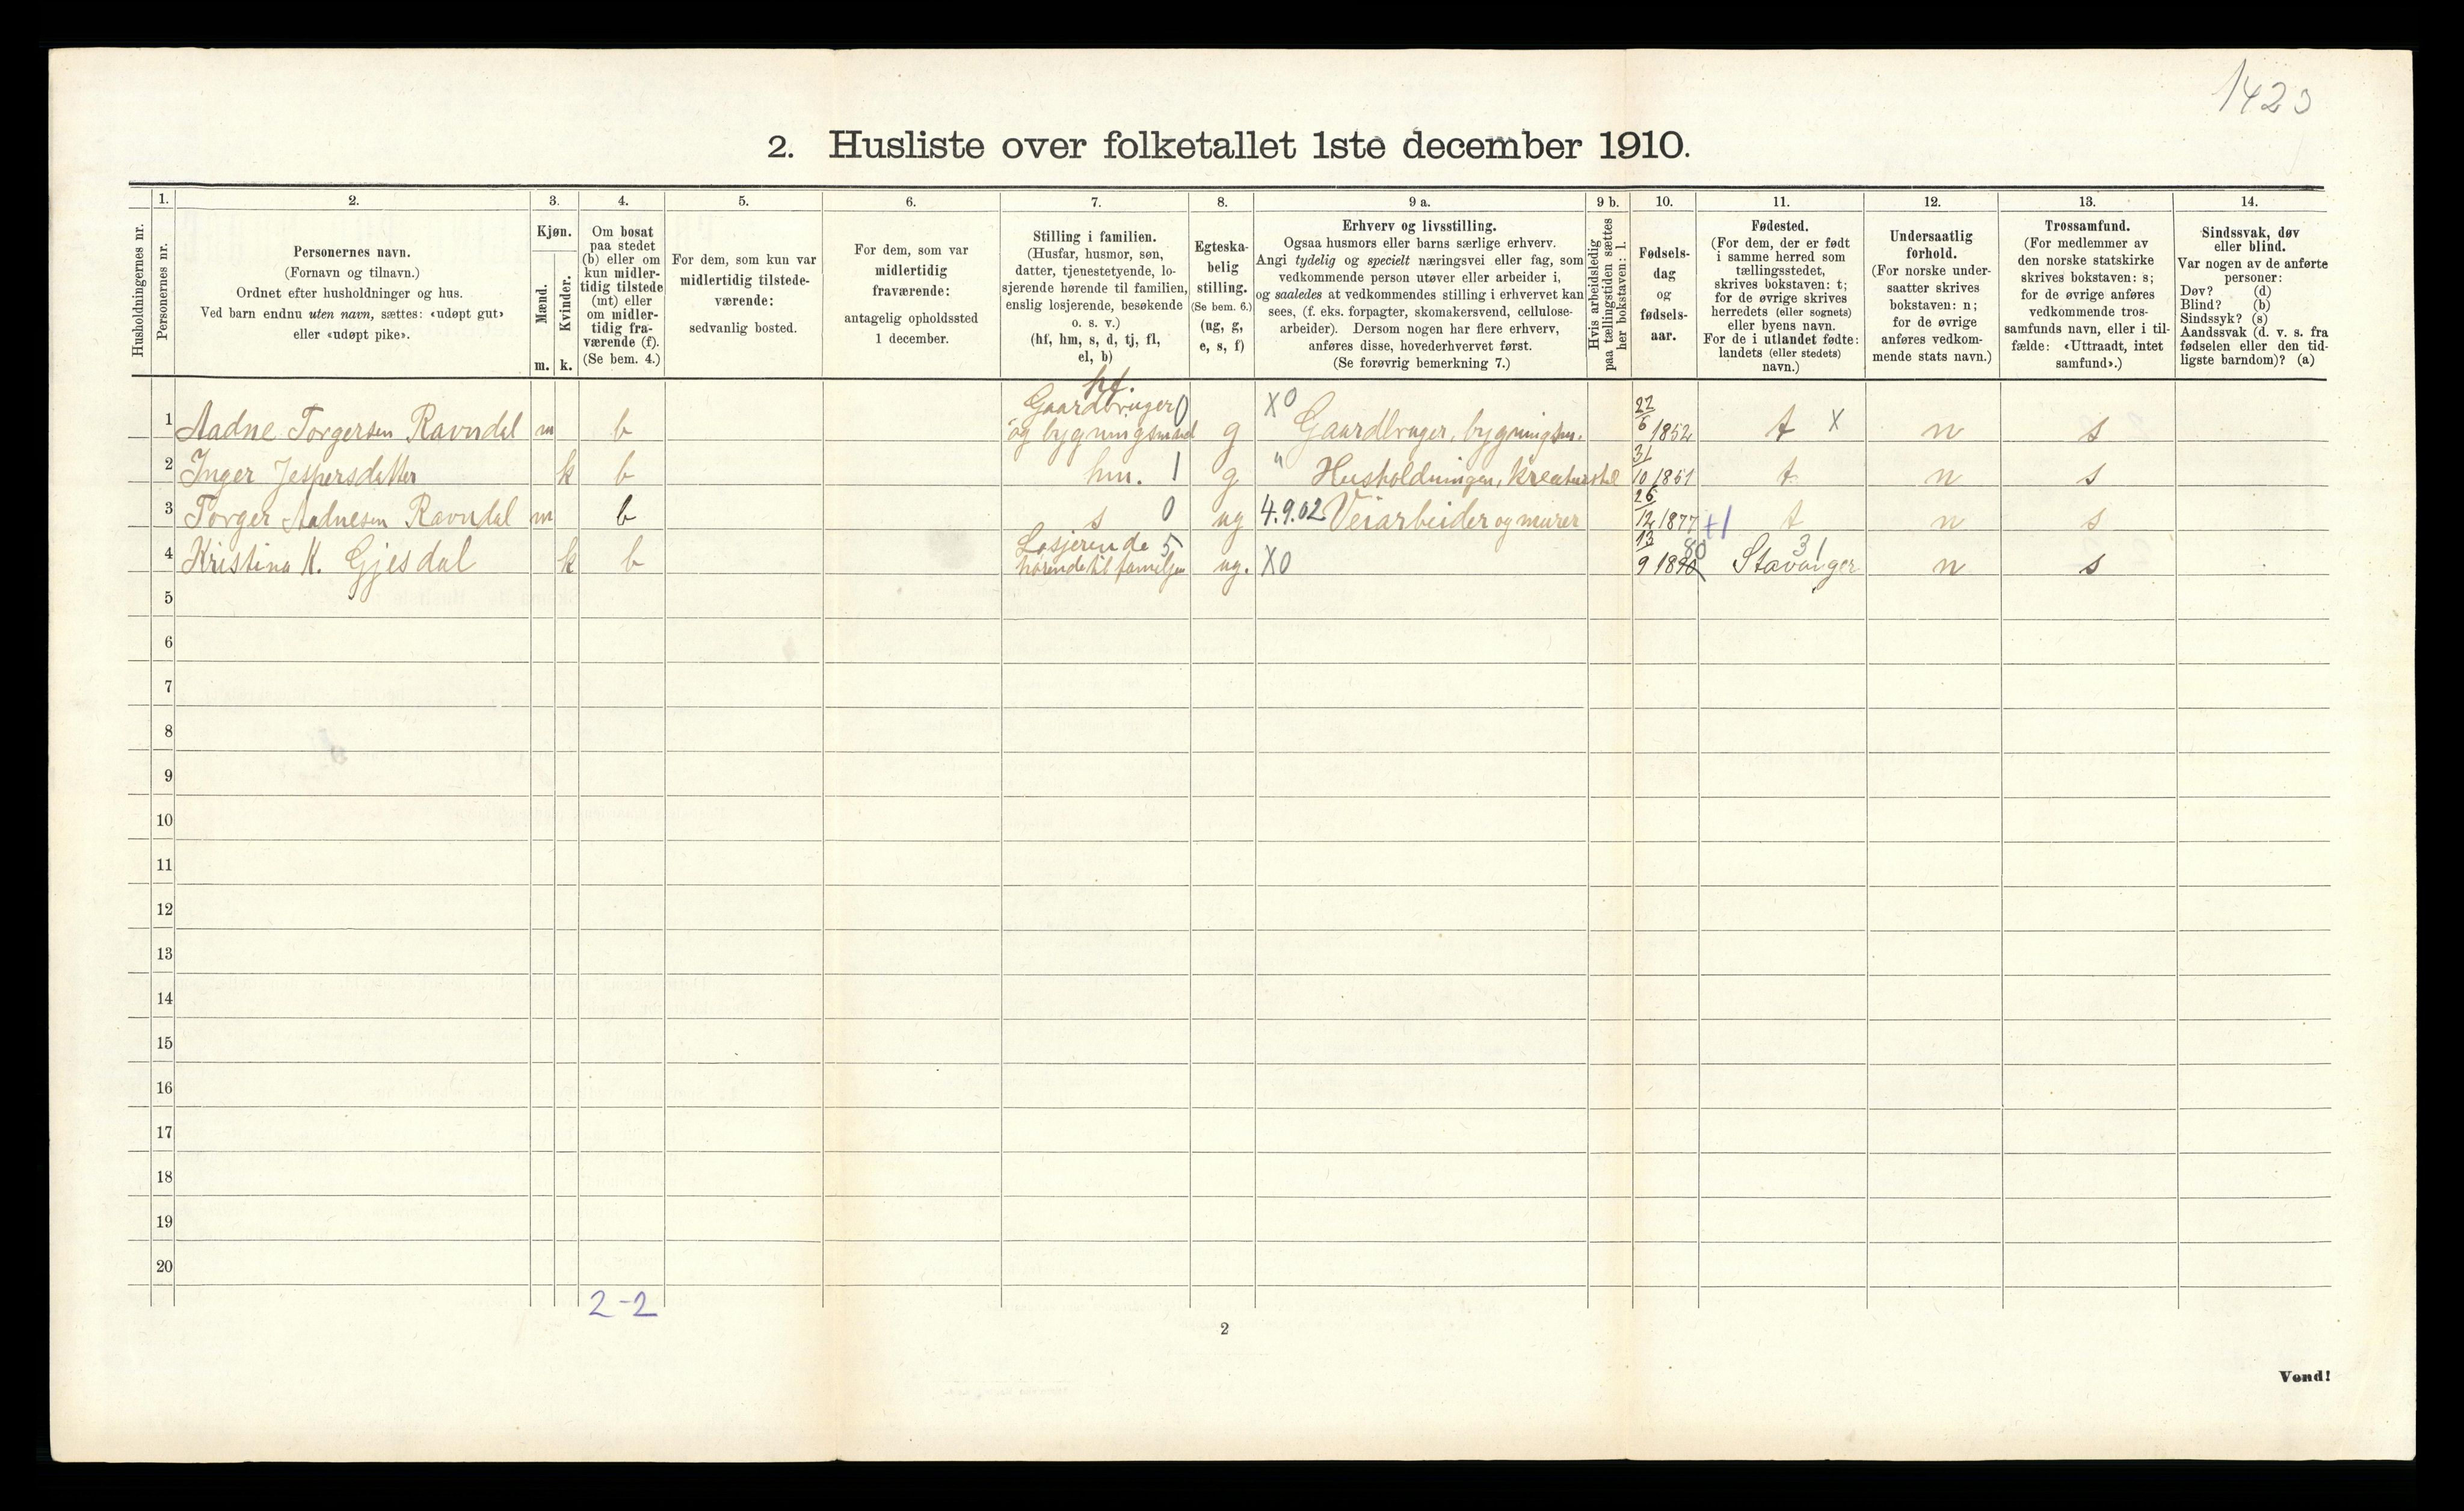 1423
2. Husliste over folketallet 1ste december 1910.
Husholdningernes nr.
1.
Personernes nr.
2.
Personernes navn.
(Fornavn og tilnavn.)
Ordnet efter husholdninger og hus.
Ved barn endnu uten navn, sættes: «udøpt gut»
eller «udøpt pike».
3.
Kjøn.
Mænd.
Kvinder.
m. k.
4.
Om bosat
paa stedet
(b) eller om
kun midler-
tidig tilstede
(mt) eller
om midler-
tidig fra-
værende (f).
(Se bem. 4.)
5.
For dem, som kun var
midlertidig tilstede-
værende:
sedvanlig bosted.
6.
For dem, som var
midlertidig
fraværende:
antagelig opholdssted
1 december.
7.
Stilling i familien.
(Husfar, husmor, søn,
datter, tjenestetyende, lo-
sjerende hørende til familien,
enslig losjerende, besøkende
o. s. v.)
(hf, hm, s, d, tj, fl,
el, b)
8.
Egteska-
belig
stilling.
(Se bem. 6.)
(ug, g,
e, s, f)
9 a.
Erhverv og livsstilling.
Ogsaa husmors eller barns særlige erhverv.
Angi tydelig og specielt næringsvei eller fag, som
vedkommende person utøver eller arbeider i,
og saaledes at vedkommendes stilling i erhvervet kan
sees, (f. eks. forpagter, skomakersvend, cellulose-
arbeider). Dersom nogen har flere erhverv,
anføres disse, hovederhvervet først.
(Se forøvrig bemerkning 7.)
9 b.
Hvis arbeidsledig
paa tællingstiden sættes
her bokstaven: l.
10.
Fødsels-
dag
og
fødsels-
aar.
11.
Fødested.
(For dem, der er født
i samme herred som
tællingsstedet,
skrives bokstaven: t;
for de øvrige skrives
herredets (eller sognets)
eller byens navn.
For de i utlandet fødte:
landets (eller stedets)
navn.)
12.
Undersaatlig
forhold.
(For norske under-
saatter skrives
bokstaven: n;
for de øvrige
anføres vedkom-
mende stats navn.)
13.
Trossamfund.
(For medlemmer av
den norske statskirke
skrives bokstaven: s;
for de øvrige anføres
vedkommende tros-
samfunds navn, eller i til-
fælde: «Uttraadt, intet
samfund».)
14.
Sindssvak, døv
eller blind.
Var nogen av de anførte
personer:
Døv? (d)
Blind? (b)
Sindssyk? (s)
Aandssvak (d. v. s. fra
fødselen eller den tid-
ligste barndom)? (a)
1 Aadne Torgersen Ravndal m b hf. Gaardbruger 0 og bygningsmand g X0 Gaardbruger, bygningsm. 22/6 1852 t X n s
2 Inger Jespersdatter k b hm. 1 g " Husholdningen, kreaturstel 31/10 1851 t n s
3 Torger Aadnesen Ravndal m b s 0 ug 4.9.02 Veiarbeider og murer 26/12 1877 +1 t n s
4 Kristina K. Gjesdal k b Losjerende 5 hørende til familjen ug. X0 13/9 1890 80 Stavanger 31 n s
5
6
7
8
9
10
11
12
13
14
15
16
17
18
19
20
2-2
2
Vend!